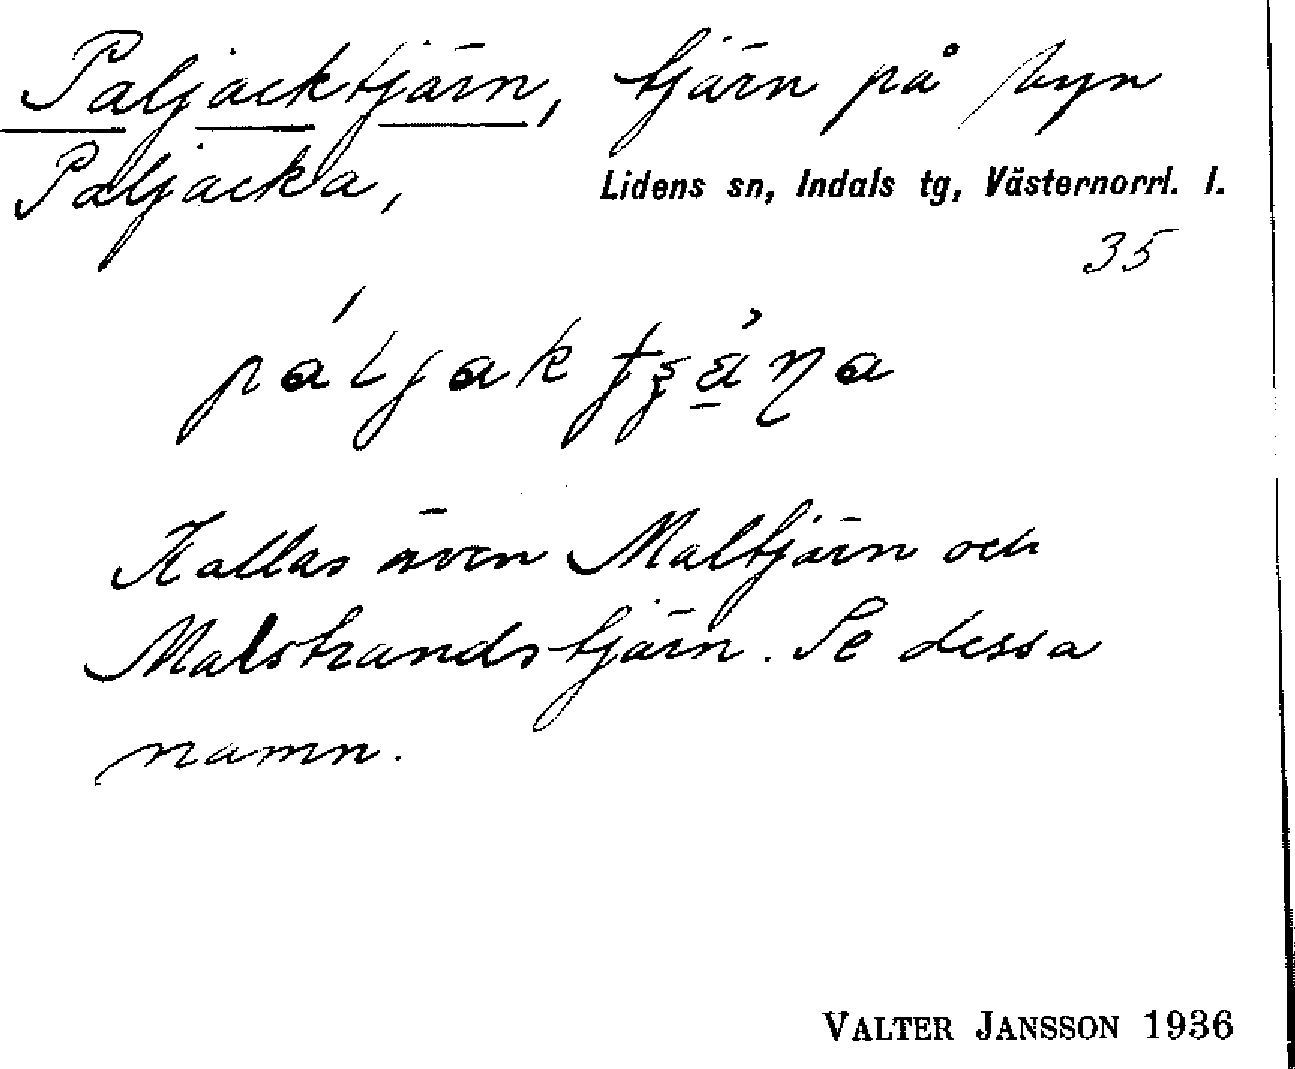 Paljacktjärn, tjärn på byn
Paljacka, Lidens sn, Indals tg, Västernorrl. l.
35
Kallas även Maltjärn och
Malstrandstjärn. Se dessa
namn.
VALTER JANSSON 1936